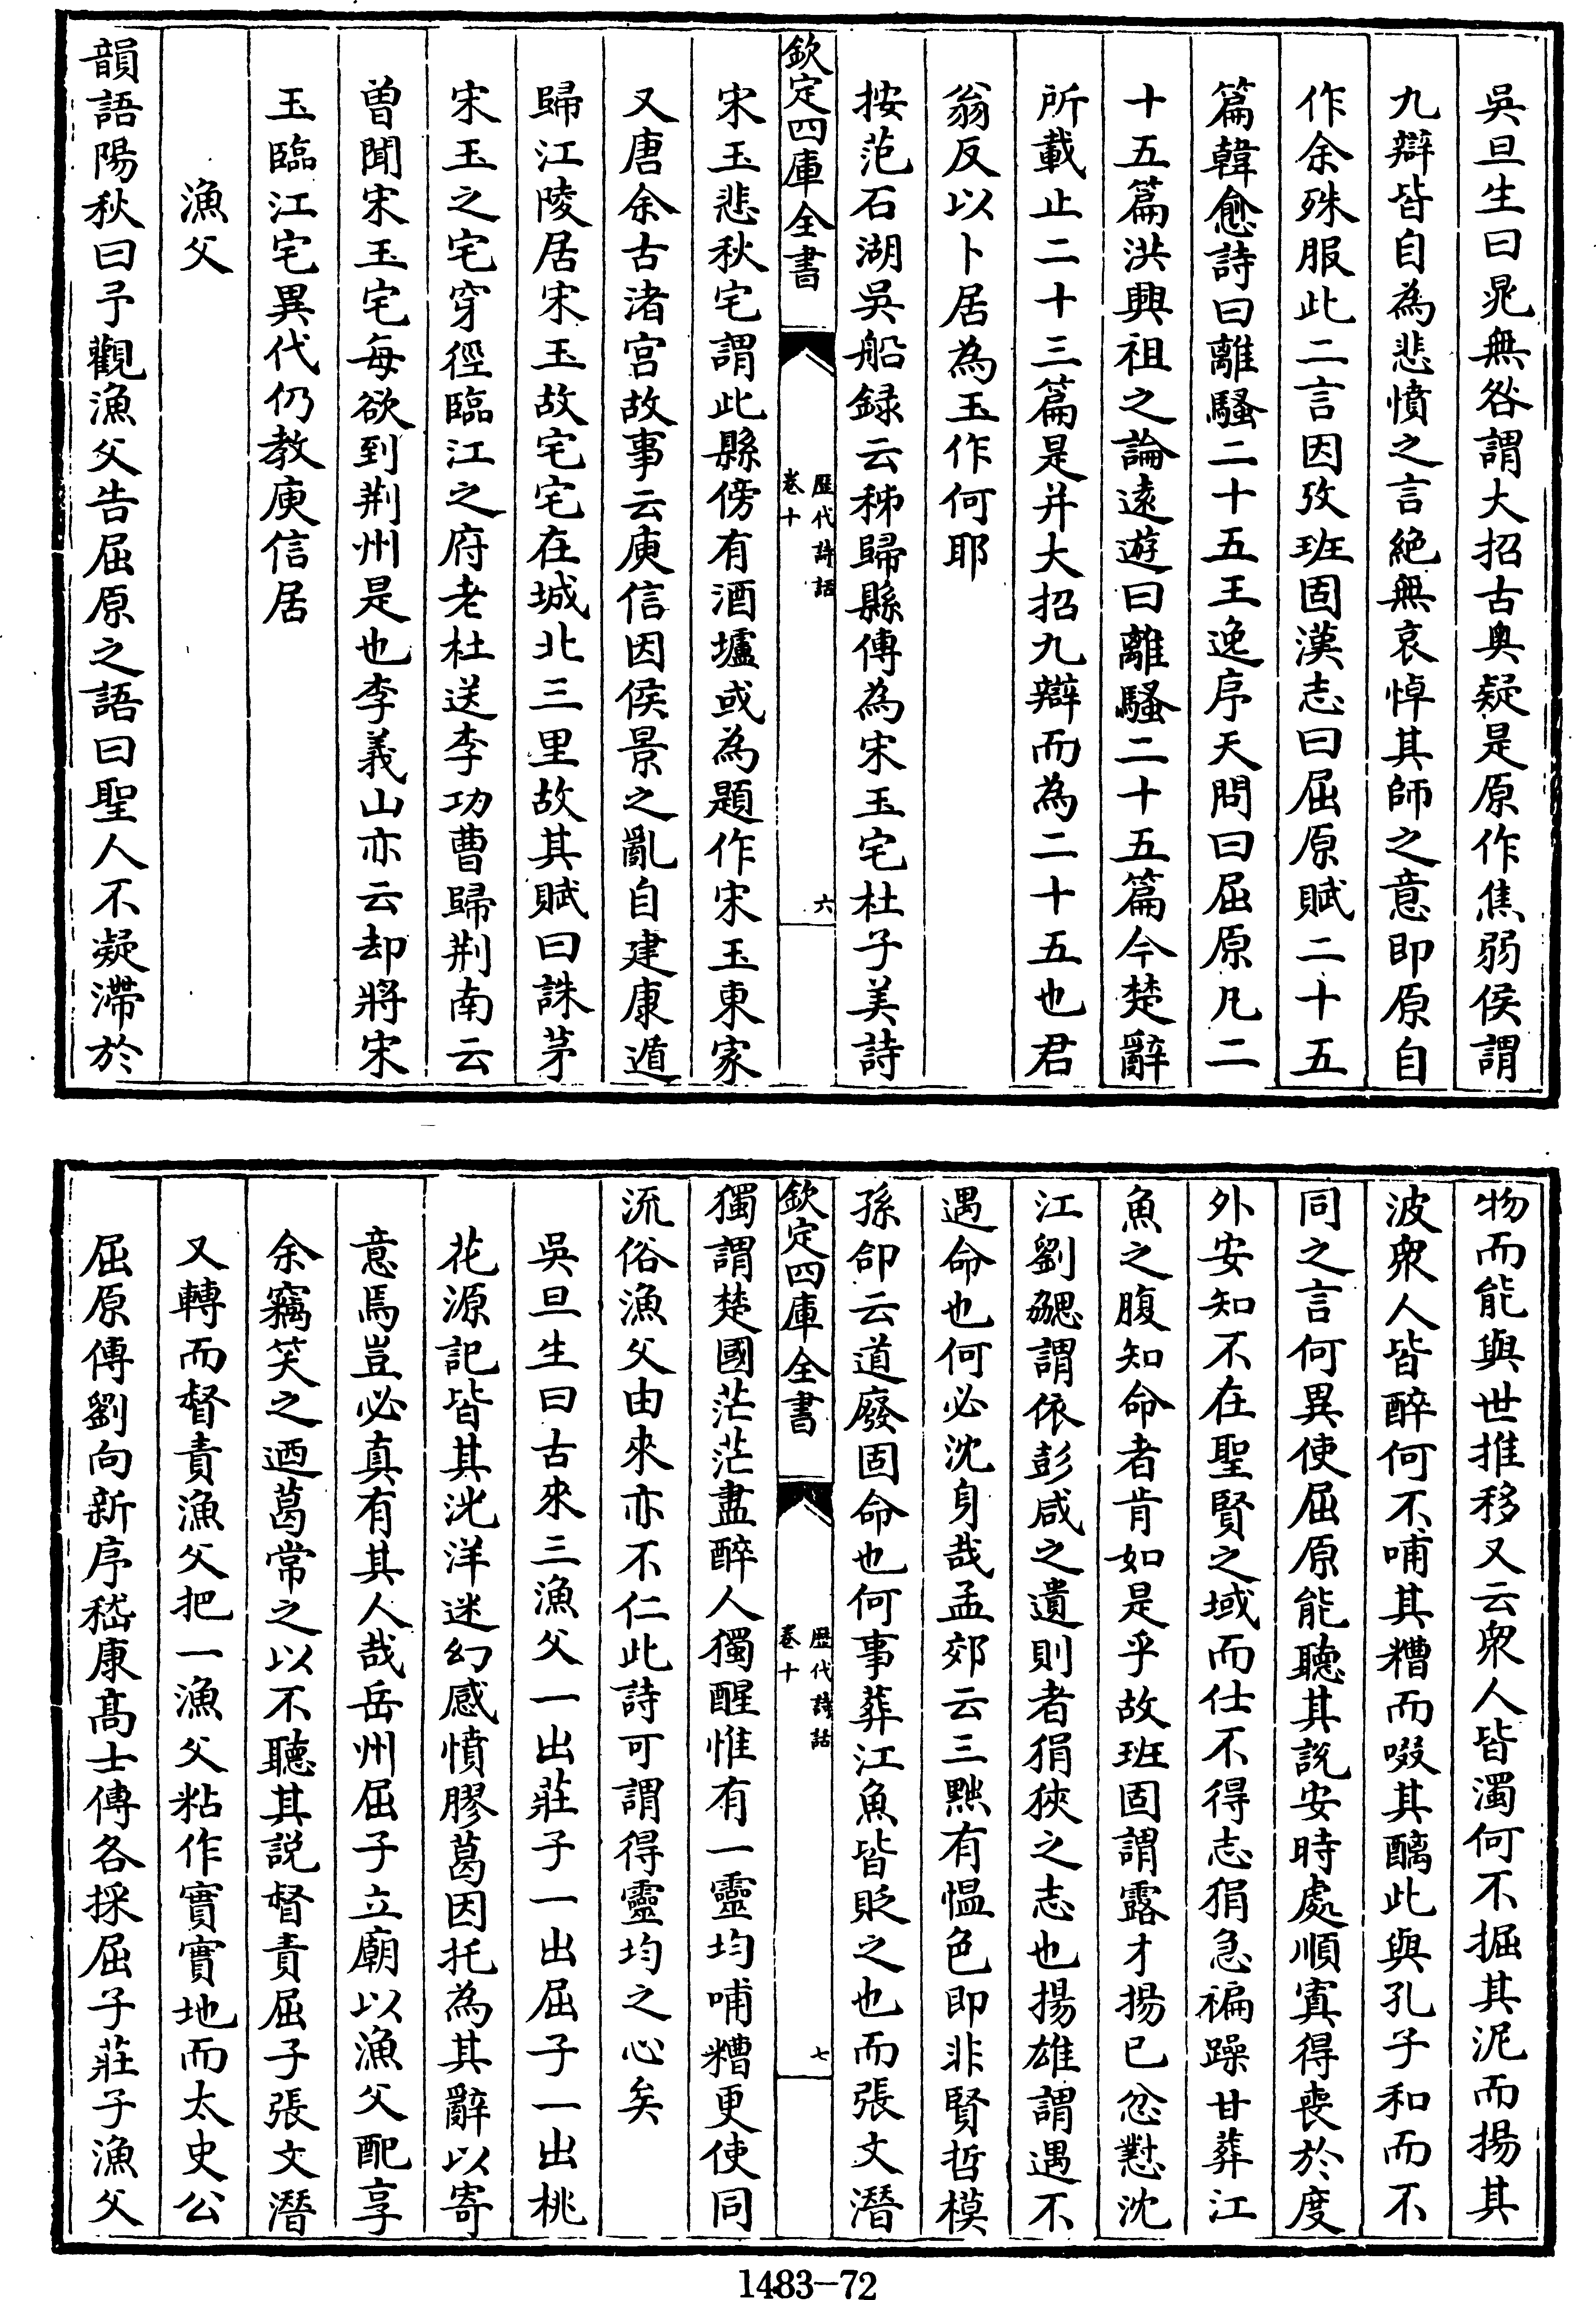 吳旦生曰晁無咎謂大招古奥疑是原作焦弱侯謂
九辯皆自為悲憤之言絶無哀悼其師之意即原自
作余殊服此二言因攷班固漢志曰屈原賦二十五
篇韓愈詩曰離騷二十五王逸序天問曰屈原凡二
十五篇洪興祖之論遠遊曰離騷二十五篇今楚辭
所載止二十三篇是并大招九辯而為二十五也君
翁反以卜居為玉作何耶
按范石湖吳船録云秭歸縣傳為宋玉宅杜子美詩
欽定四庫全書
歷代詩話
卷十
六
宋玉悲秋宅謂此縣傍有酒壚或為題作宋玉東家
又唐余古渚宫故事云庾信因侯景之亂自建康遁
歸江陵居宋玉故宅宅在城北三里故其賦曰誅茅
宋玉之宅穿徑臨江之府老杜送李功曹歸荆南云
曾聞宋玉宅每欲到荆州是也李義山亦云却將宋
玉臨江宅異代仍教庾信居
漁父
韻語陽秋曰予觀漁父告屈原之語曰聖人不凝滯於
物而能與世推移又云衆人皆濁何不掘其泥而揚其
波衆人皆醉何不哺其糟而啜其醨此與孔子和而不
同之言何異使屈原能聽其說安時處順寘得喪於度
外安知不在聖賢之域而仕不得志狷急褊躁甘葬江
魚之腹知命者肯如是乎故班固謂露才揚已忿懟沈
江劉勰謂依彭咸之遺則者狷狹之志也揚雄謂遇不
遇命也何必沈身哉孟郊云三黜有愠色即非賢哲模
孫郃云道廢固命也何事葬江魚皆貶之也而張文潛
欽定四庫全書
歷代詩話
卷十
七
獨謂楚國茫茫盡醉人獨醒惟有一靈均哺糟更使同
流俗漁父由來亦不仁此詩可謂得靈均之心矣
吳旦生曰古來三漁父一出莊子一出屈子一出桃
花源記皆其洸洋迷幻感憤膠葛因托為其辭以寄
意焉豈必真有其人哉岳州屈子立廟以漁父配享
余竊笑之迺葛常之以不聽其説督責屈子張文潛
又轉而督責漁父把一漁父粘作實實地而太史公
屈原傳劉向新序嵇康髙士傳各採屈子莊子漁父
1483-72